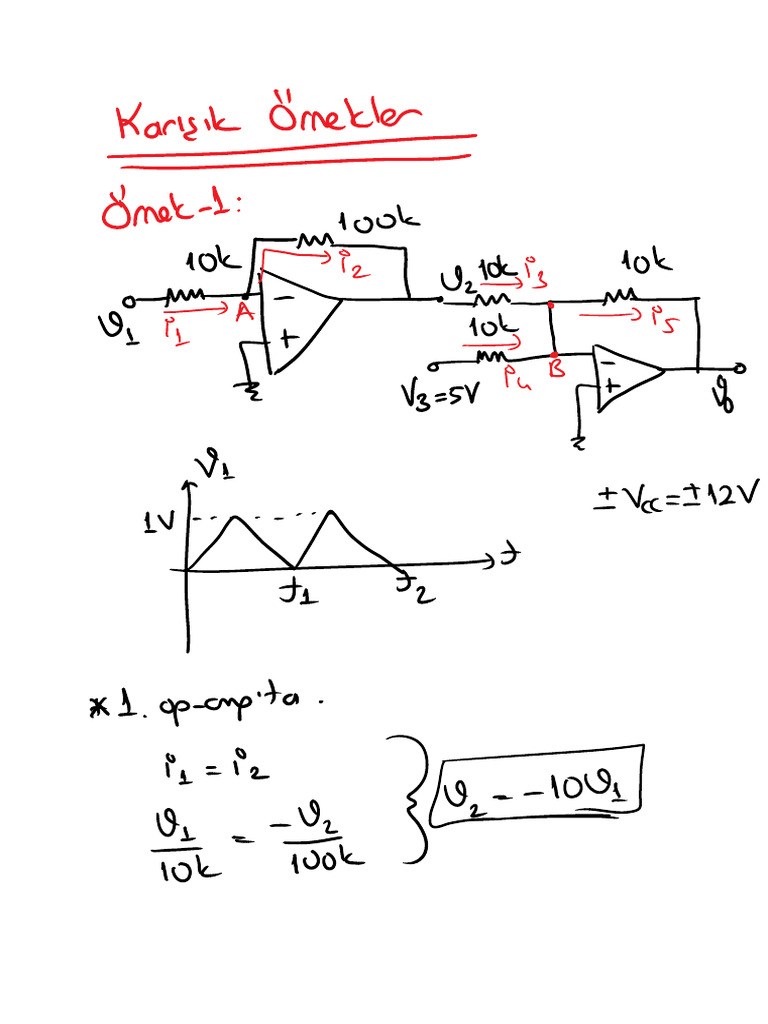 Karışık Örnekler
Örnek-1:
100k
10k i2 v2 10k i3 10k
v1 i1 A − + 10k i5
V3=5V i4 B − + v0
±Vcc=±12V
v1
1V
t
t1 t2
* 1. op-amp'ta.
i1 = i2
v1/10k = -v2/100k
v2 = -10v1